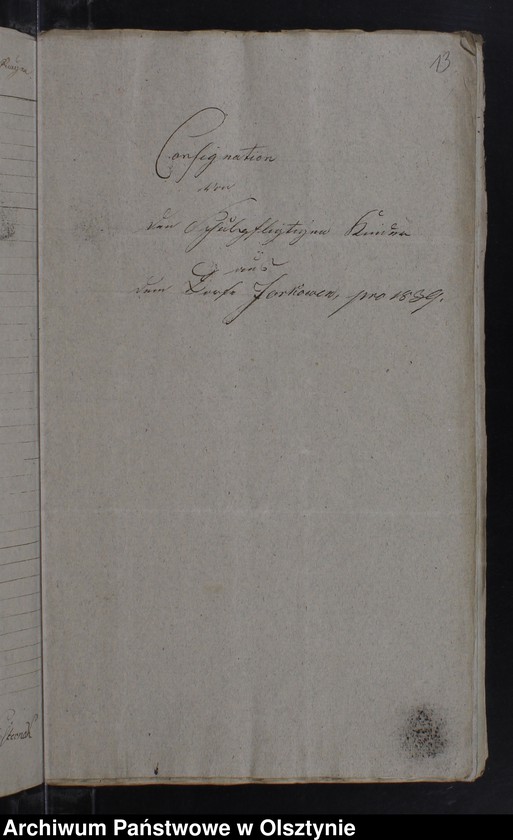 13
Consignation
von
den Schulpfligtigen Kinder
aus
dem Dorfe Jorkowen, pro 1839.
Archiwum Państwowe w Olsztynie